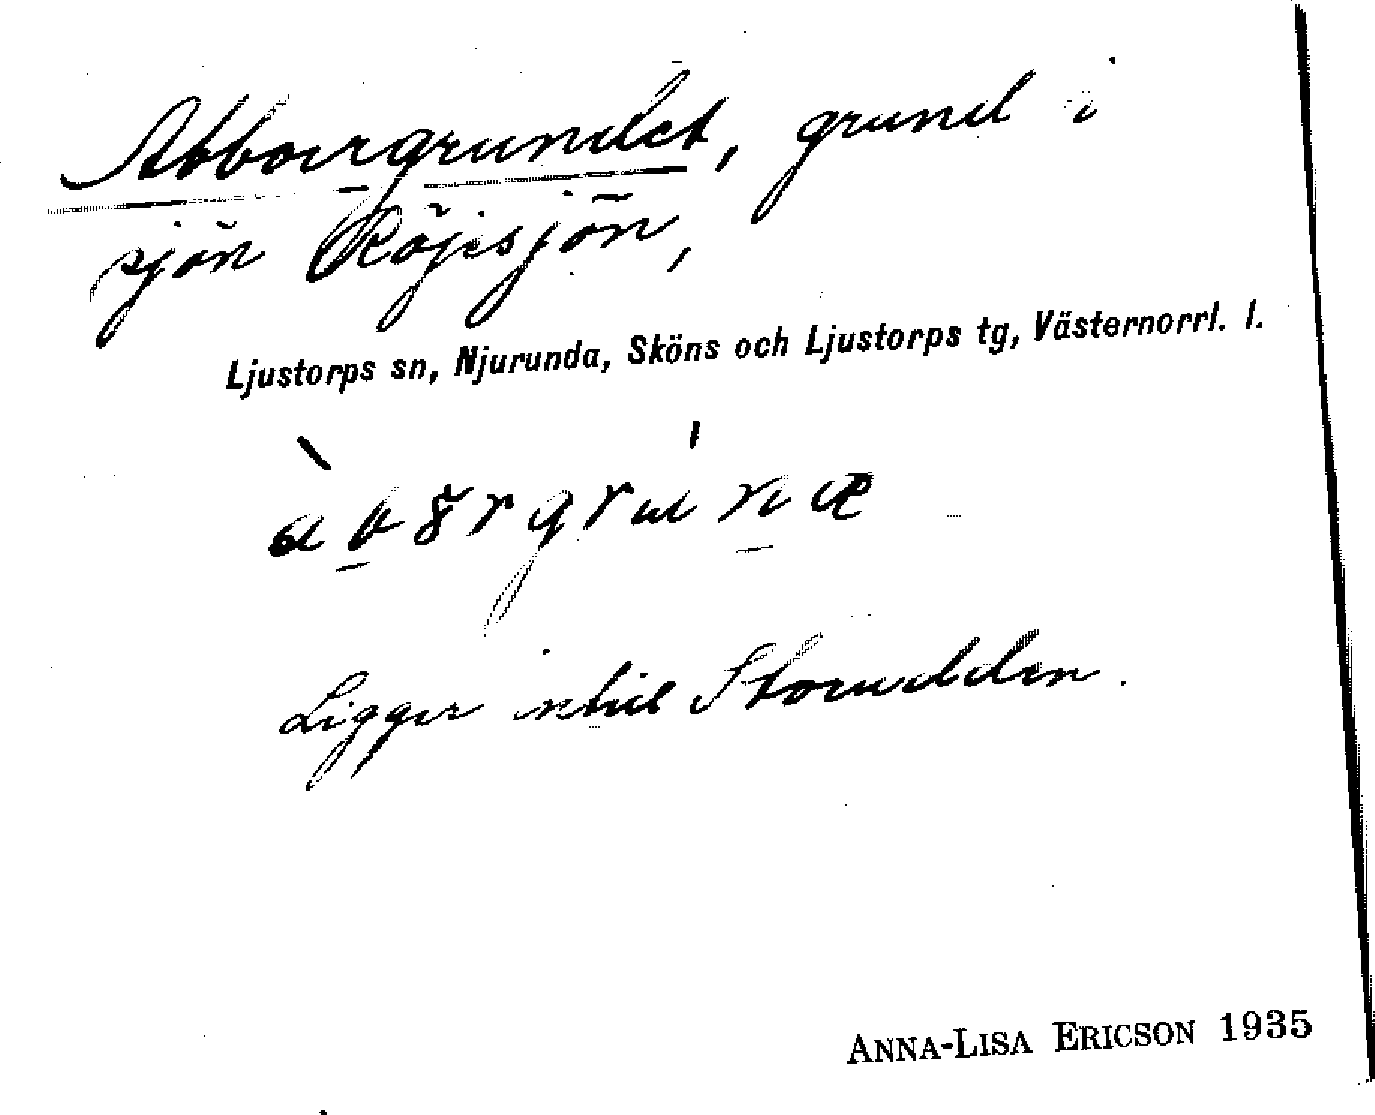 Abborrgrundet, grund i
sjön Röjesjön,
Ljustorps sn, Njurunda, Sköns och Ljustorps tg, Västernorrl. l.
Ligger intill Storudden.
ANNA-LISA ERICSON 1935